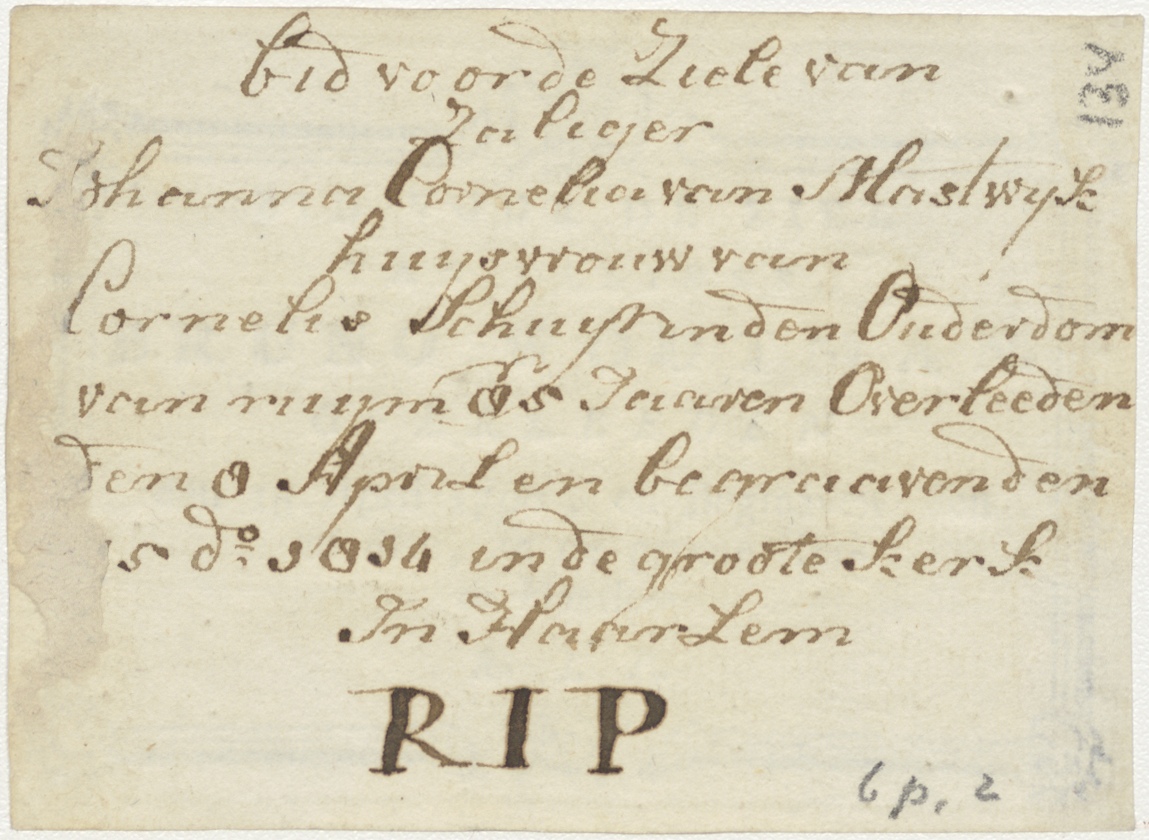 bid voor de Ziele van
Zaliger
Johanna Cornelia van Mastwyk
huysvrouw van
Cornelis Schuyt in den Ouderdom
van ruym 85 Jaaren Overleeden
den 8 April en begraaven den
15 do: 1814 in de groote kerk
In Haarlem
RIP
6 p. 2